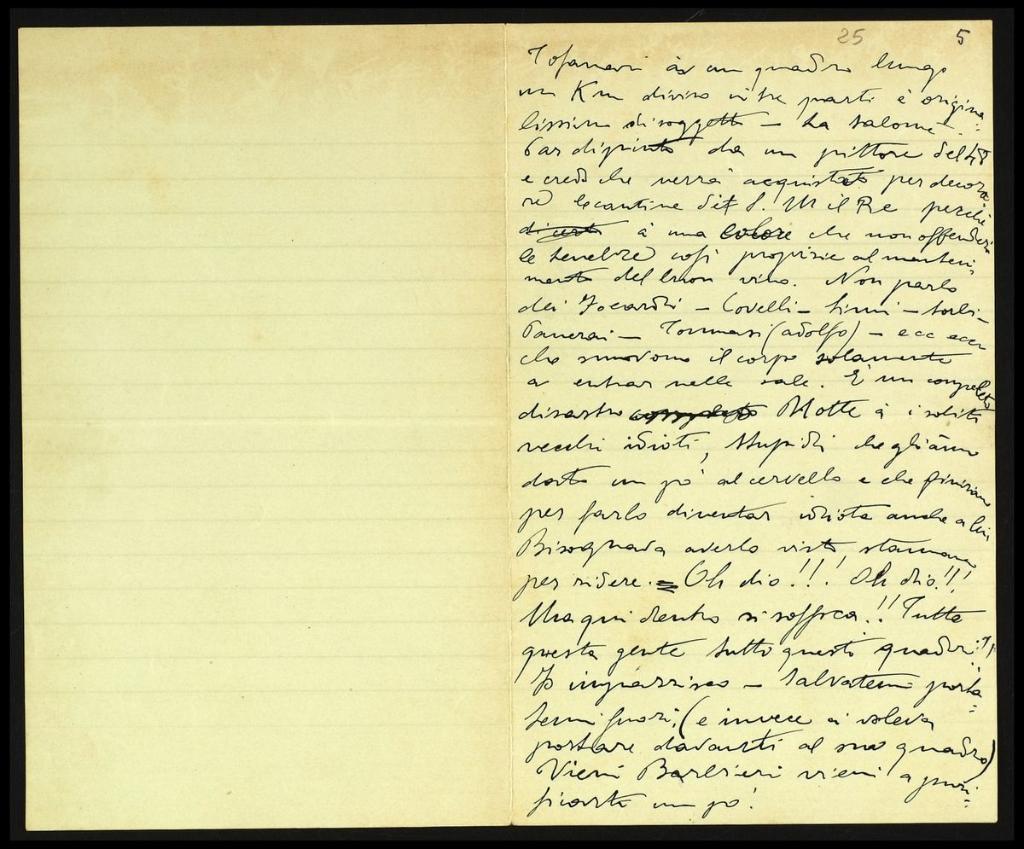 25 5
Tofanari à un quadro lungo
un Km diviso in tre parti è origina=
lissimo di soggetto – La Salomé –.
Par dipinto da un pittore del 48
e credo che verrà acquistato per decora
re le cantine di S. M il Re perché
à una colore che non offenderà
le tenebre così propizie al manteni=
mento del buon vino. Non parlo
dei Focardi – Covelli – Simi – Sorbi –
Panerai – Tommasi (Adolfo) – ecc ecc
che smuovono il corpo solamente
a entrar nelle sale. È un completo
disastro completo Motte à i soliti
vecchi idioti, stupidi che gli ànno
dato un po' al cervello e che finiranno
per farlo diventar idiota anche a lui
Bisognava averlo visto, stamane
per ridere. = Oh dio!!! Oh dio!!!
Ma qui dentro si soffoca!! Tutta
questa gente tutti questi quadri!
Io impazzisco – Salvatemi porta=
temi fuori, (e invece ci voleva
portare davanti al suo quadro)
Vieni Barbieri vieni a puri=
ficarti un po'!